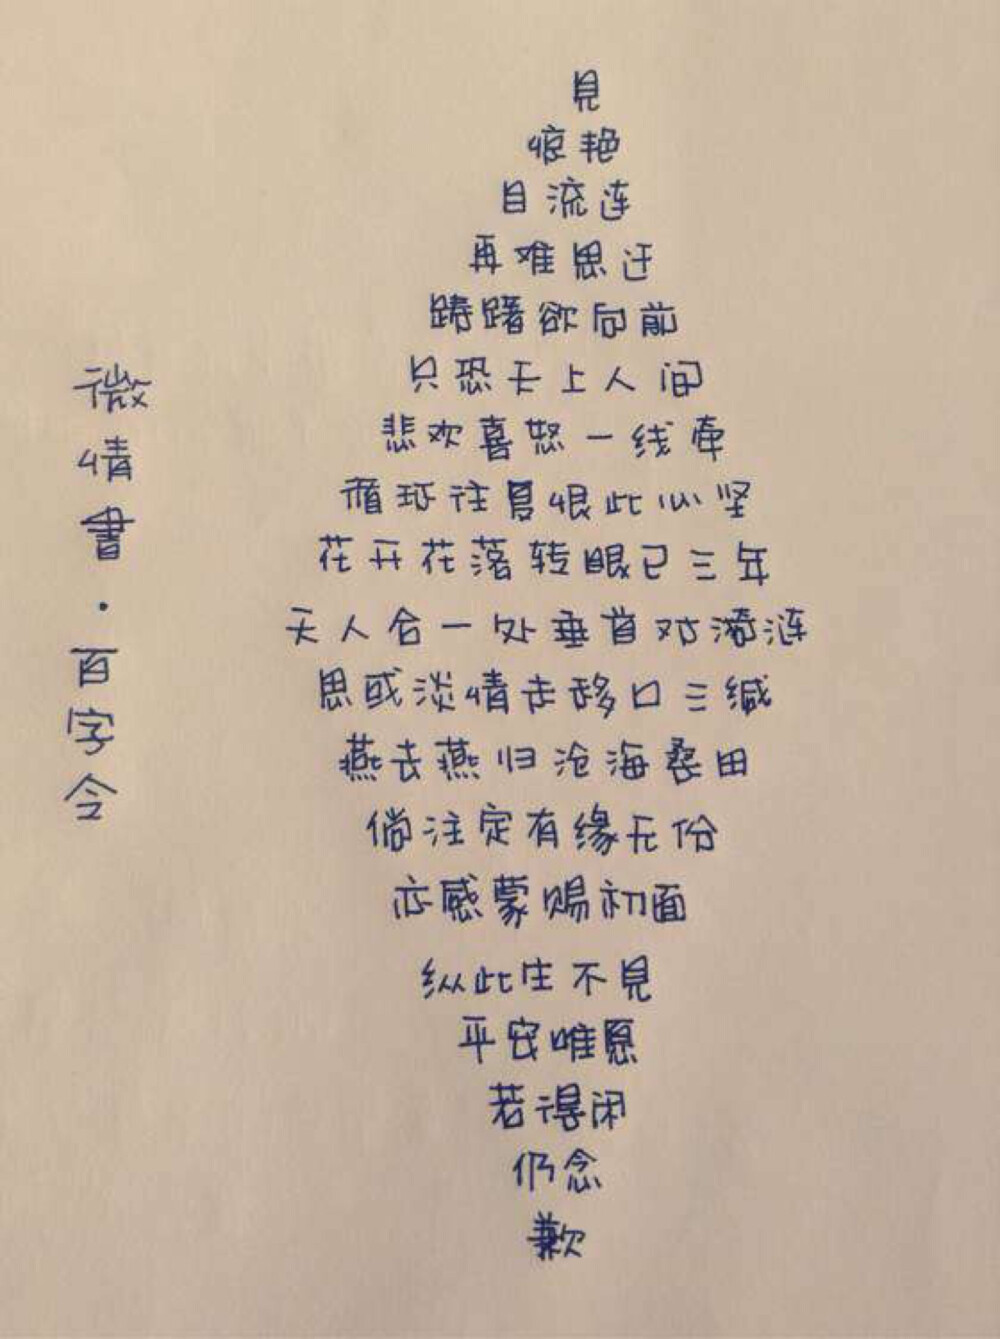 見
惊艳
目流连
再难思迁
踌躇欲向前
只恐天上人间
悲欢喜怒一线牵
循环往复恨此心坚
花开花落转眼已三年
天人合一处垂首对漪涟
思或淡情走移口三缄
燕去燕归沧海桑田
倘注定有缘无份
亦感蒙赐初面
纵此生不見
平安唯愿
若得闲
仍念
歉
微情書·百字令